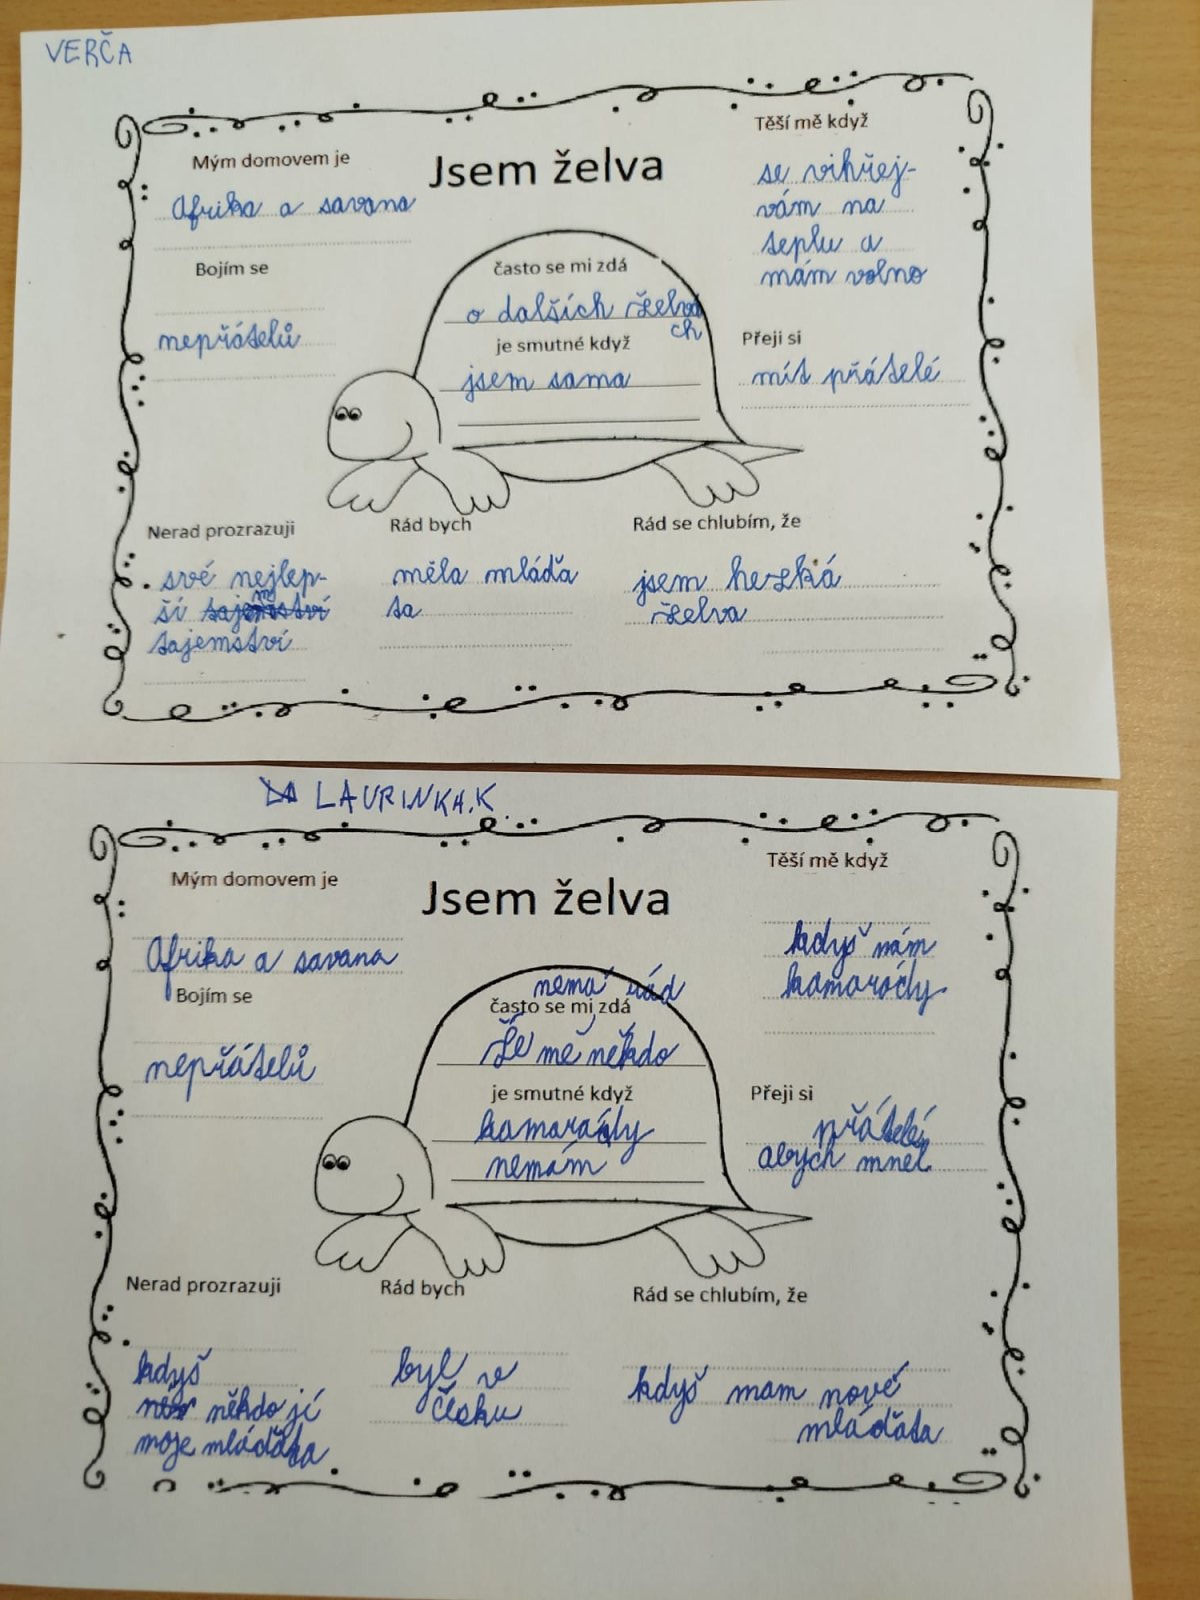 VERČA
Mým domovem je
Afrika a savana
Jsem želva
Těší mě když
se vihřej-
vám na
teplu a
mám volno
Bojím se
nepřátelů
často se mi zdá
o dalších želvá
ch
je smutné když
jsem sama
Přeji si
mít přátelé
Nerad prozrazuji
své nejlep-
ší
tajemství
Rád bych
měla mláďa
ta
Rád se chlubím, že
jsem heská
želva
LAURINKA.K.
Mým domovem je
Afrika a savana
Jsem želva
Těší mě když
kdyš mám
kamarády
Bojím se
nepřátelů
nemá rád
často se mi zdá
Že mě někdo
je smutné když
kamarády
nemám
Přeji si
přátelé
abych mněl
Nerad prozrazuji
kdyš
někdo jí
moje mláďata
Rád bych
byl v
Česku
Rád se chlubím, že
kdyš mam nové
mláďata